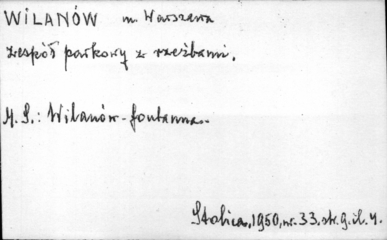 WILANÓW m. Warszawa
zespół parkowy z rzeźbami.
M. S.: Wilanów - fontanna.
Stolica, 1950, nr. 33, str. 9. il. 4.